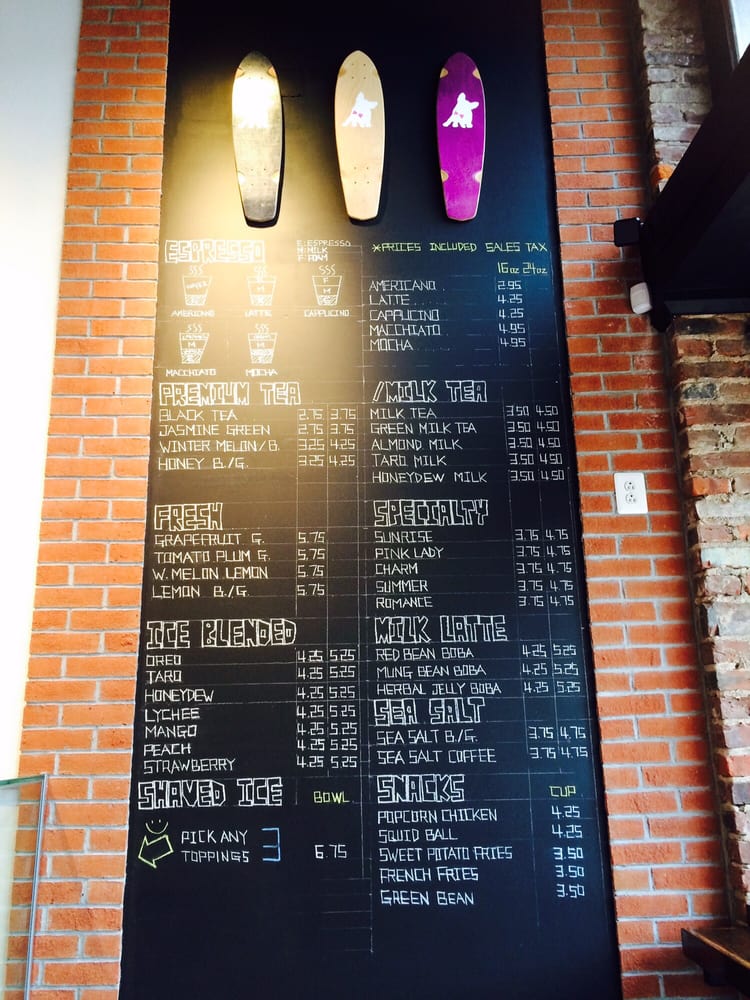 ESPRESSO
E: ESPRESSO
M: MILK
F: FOAM
AMERICANO LATTE CAPPUCINO
MACCHIATO MOCHA
*PRICES INCLUDED SALES TAX
16oz 24oz
AMERICANO 2.95
LATTE 4.25
CAPPUCINO 4.25
MACCHIATO 4.95
MOCHA 4.95
PREMIUM TEA
BLACK TEA 2.75 3.75
JASMINE GREEN 2.75 3.75
WINTER MELON/B. 3.25 4.25
HONEY B./G. 3.25 4.25
/MILK TEA
MILK TEA 3.50 4.50
GREEN MILK TEA 3.50 4.50
ALMOND MILK 3.50 4.50
TARO MILK 3.50 4.50
HONEYDEW MILK 3.50 4.50
FRESH
GRAPEFRUIT G. 5.75
TOMATO PLUM G. 5.75
W. MELON LEMON 5.75
LEMON B./G. 5.75
SPECIALTY
SUNRISE 3.75 4.75
PINK LADY 3.75 4.75
CHARM 3.75 4.75
SUMMER 3.75 4.75
ROMANCE 3.75 4.75
ICE BLENDED
OREO 4.25 5.25
TARO 4.25 5.25
HONEYDEW 4.25 5.25
LYCHEE 4.25 5.25
MANGO 4.25 5.25
PEACH 4.25 5.25
STRAWBERRY 4.25 5.25
MILK LATTE
RED BEAN BOBA 4.25 5.25
MUNG BEAN BOBA 4.25 5.25
HERBAL JELLY BOBA 4.25 5.25
SEA SALT
SEA SALT B./G. 3.75 4.75
SEA SALT COFFEE 3.75 4.75
SHAVED ICE BOWL
PICK ANY 3
TOPPINGS 6.75
SNACKS CUP
POPCORN CHICKEN 4.25
SQUID BALL 4.25
SWEET POTATO FRIES 3.50
FRENCH FRIES 3.50
GREEN BEAN 3.50